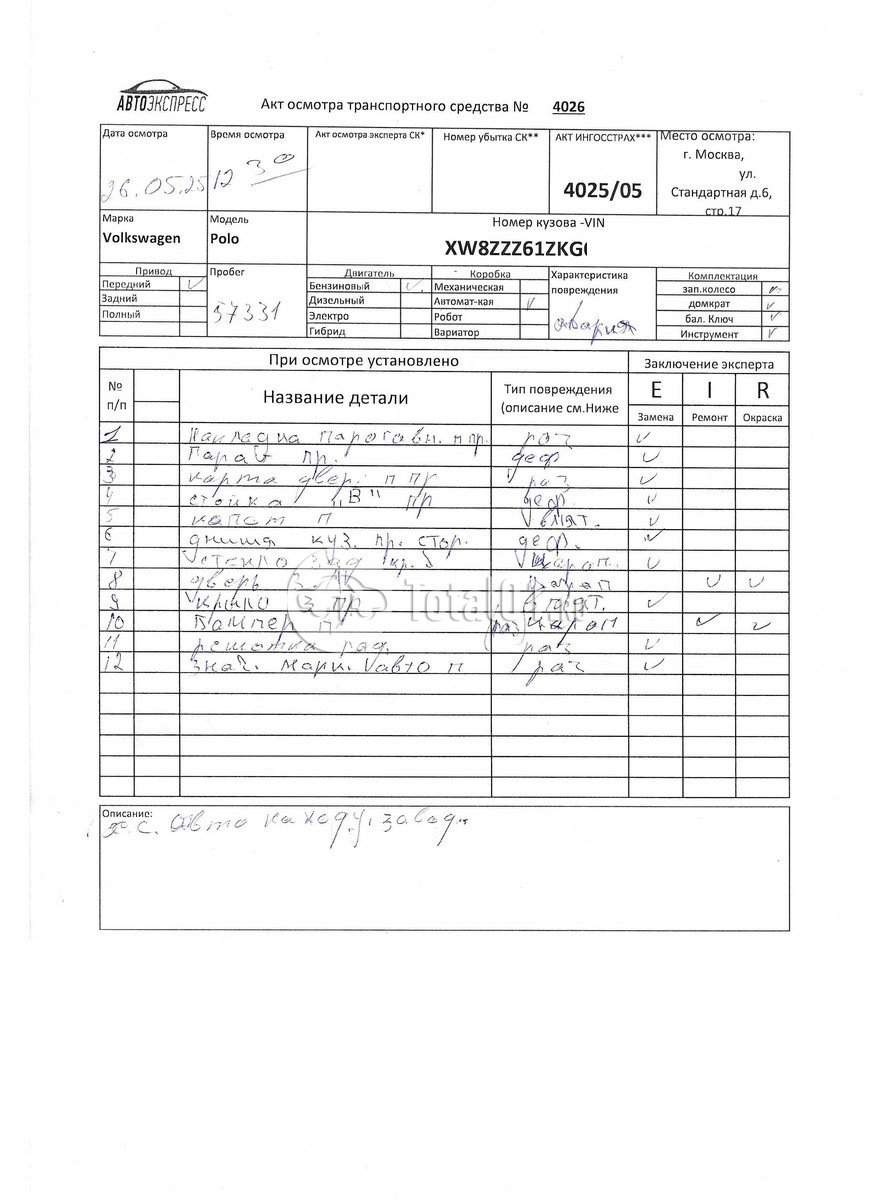 АВТОЭКСПРЕСС
Акт осмотра транспортного средства № 4026
Дата осмотра Время осмотра Акт осмотра эксперта СК* Номер убытка СК** АКТ ИНГОССТРАХ*** Место осмотра:
г. Москва,
ул.
26.05.25 12 30 4025/05 Стандартная д.6,
стр.17
Марка Модель Номер кузова -VIN
Volkswagen Polo XW8ZZZ61ZKG
Привод Пробег Двигатель Коробка Характеристика Комплектация
Передний ✓ Бензиновый ✓ Механическая повреждения зап.колесо
Задний 57331 Дизельный Автомат-кая ✓ домкрат ✓
Полный Электро Робот авария бал. Ключ ✓
Гибрид Вариатор Инструмент ✓
При осмотре установлено Заключение эксперта
№ п/п Название детали Тип повреждения (описание см.Ниже E I R
Замена Ремонт Окраска
1 Накладка порога вн. п пр. раз ✓
2 пр. деф ✓
3 карта двер. п пр раз ✓
4 стойка "В" пр деф. ✓
5 капот п ✓
6 куз. пр. стор. деф. ✓
7 стекло зад ✓
8 дверь з. царап ✓ ✓
9 крыло з пр. ✓
10 Бампер п царап ✓ ✓
11 решотка рад. раз ✓
12 знач. марк. авто п раз ✓
Total01.ru
Описание:
авто на ходу, завод.